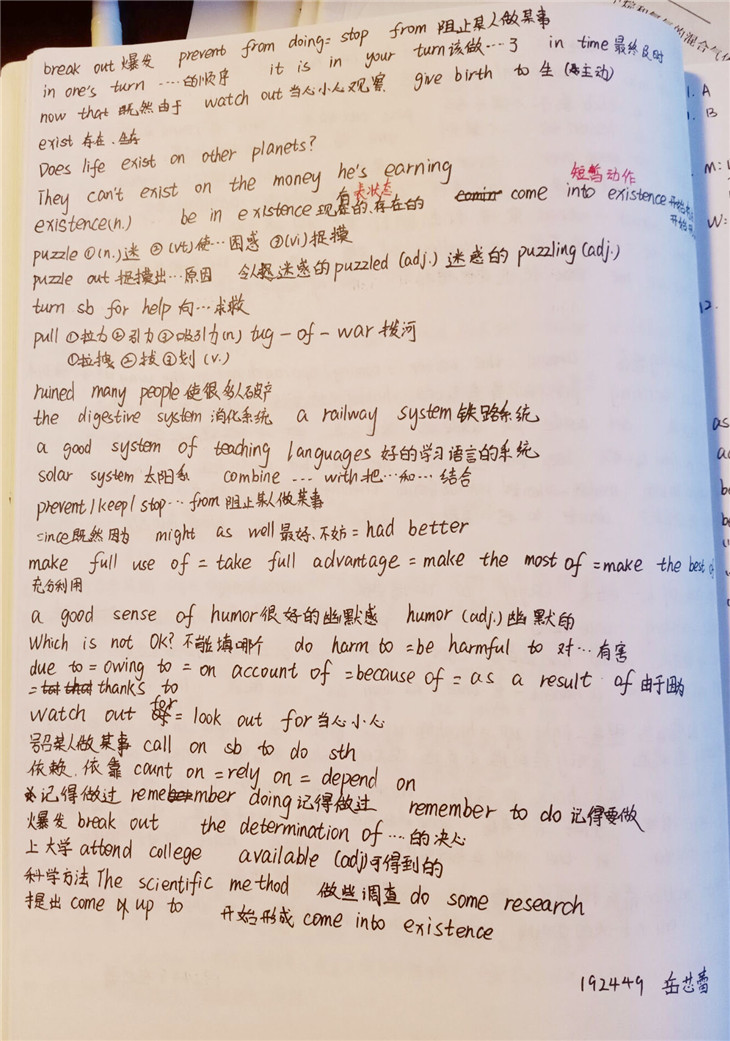 break out 爆发 prevent from doing = stop from 阻止某人做某事
in one's turn ……的顺序 it is in your turn 该做…了 in time 最终及时
now that 既然由于 watch out 当心小心观察 give birth to 生 (主动)
exist 存在、生存
Does life exist on other planets?
They can't exist on the money he's earning
长状态 短暂动作
existence(n.) be in existence 现存的、存在的 come into existence 开始
puzzle ①(n.)迷 ②(vt)使…困惑 ③(vi)捉摸
puzzle out 捉摸出…原因 令人迷惑的 puzzled (adj.) 迷惑的 puzzling (adj.)
turn sb for help 向…求救
pull ①拉力②引力③吸引力(n) tug-of-war 拨河
①拉拽②拔③划 (v.)
ruined many people 使很多人破产
the digestive system 消化系统 a railway system 铁路系统
a good system of teaching languages 好的学习语言的系统
solar system 太阳系 combine … with 把…和…结合
prevent/keep/stop…from 阻止某人做某事
since 既然因为 might as well 最好、不妨 = had better
make full use of = take full advantage = make the most of = make the best of
充分利用
a good sense of humor 很好的幽默感 humor (adj.) 幽默的
Which is not OK? 不能填哪个 do harm to = be harmful to 对…有害
due to = owing to = on account of = because of = as a result of 由于因为
= thanks to
watch out for = look out for 当心小心
号召某人做某事 call on sb to do sth
依赖、依靠 count on = rely on = depend on
※记得做过 remember doing 记得做过 remember to do 记得要做
爆发 break out the determination of …的决心
上大学 attend college available (adj) 可得到的
科学方法 The scientific method 做些调查 do some research
提出 come up to 开始形成 come into existence
192449 岳芯蕾
A
B